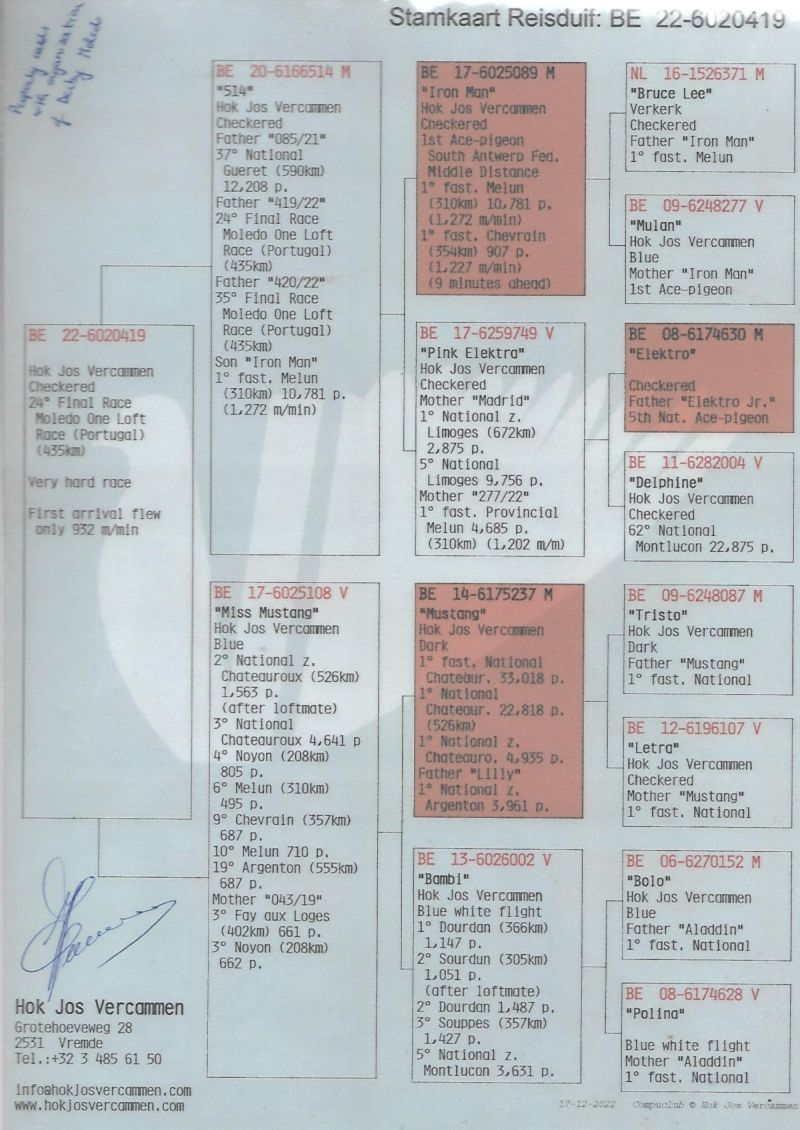 Stamkaart Reisduif: BE 22-6020419
of Derby Moledo
BE 20-6166514 M
"514"
Hok Jos Vercammen
Checkered
Father "085/21"
37° National
Gueret (590km)
12,208 p.
Father "419/22"
24° Final Race
Moledo One Loft
Race (Portugal)
(435km)
Father "420/22"
35° Final Race
Moledo One Loft
Race (Portugal)
(435km)
Son "Iron Man"
1° fast. Melun
(310km) 10,781 p.
(1,272 m/min)
BE 17-6025089 M
"Iron Man"
Hok Jos Vercammen
Checkered
1st Ace-pigeon
South Antwerp Fed.
Middle Distance
1° fast. Melun
(310km) 10,781 p.
(1,272 m/min)
1° fast. Chevrain
(354km) 907 p.
(1,227 m/min)
(9 minutes ahead)
NL 16-1526371 M
"Bruce Lee"
Verkerk
Checkered
Father "Iron Man"
1° fast. Melun
BE 09-6248277 V
"Mulan"
Hok Jos Vercammen
Blue
Mother "Iron Man"
1st Ace-pigeon
BE 22-6020419
Hok Jos Vercammen
Checkered
24° Final Race
Moledo One Loft
Race (Portugal)
(435km)
Very hard race
First arrival flew
only 932 m/min
BE 17-6259749 V
"Pink Elektra"
Hok Jos Vercammen
Checkered
Mother "Madrid"
1° National z.
Limoges (672km)
2,875 p.
5° National
Limoges 9,756 p.
Mother "277/22"
1° fast. Provincial
Melun 4,685 p.
(310km) (1,202 m/m)
BE 08-6174630 M
"Elektro"
Checkered
Father "Elektro Jr."
5th Nat. Ace-pigeon
BE 11-6282004 V
"Delphine"
Hok Jos Vercammen
Checkered
62° National
Montlucon 22,875 p.
BE 17-6025108 V
"Miss Mustang"
Hok Jos Vercammen
Blue
2° National z.
Chateauroux (526km)
1,563 p.
(after loftmate)
3° National
Chateauroux 4,641 p
4° Noyon (208km)
805 p.
6° Melun (310km)
495 p.
9° Chevrain (357km)
687 p.
10° Melun 710 p.
19° Argenton (555km)
687 p.
Mother "043/19"
3° Fay aux Loges
(402km) 661 p.
3° Noyon (208km)
662 p.
BE 14-6175237 M
"Mustang"
Hok Jos Vercammen
Dark
1° fast. National
Chateaur. 33,018 p.
1° National
Chateaur. 22,818 p.
(526km)
1° National z.
Chateauro. 4,935 p.
Father "Lilly"
1° National z.
Argenton 3,961 p.
BE 09-6248087 M
"Tristo"
Hok Jos Vercammen
Dark
Father "Mustang"
1° fast. National
BE 12-6196107 V
"Letra"
Hok Jos Vercammen
Checkered
Mother "Mustang"
1° fast. National
BE 13-6026002 V
"Bambi"
Hok Jos Vercammen
Blue white flight
1° Dourdan (366km)
1,147 p.
2° Sourdun (305km)
1,051 p.
(after loftmate)
2° Dourdan 1,487 p.
3° Souppes (357km)
1,427 p.
5° National z.
Montlucon 3,631 p.
BE 06-6270152 M
"Bolo"
Hok Jos Vercammen
Blue
Father "Aladdin"
1° fast. National
BE 08-6174628 V
"Polina"
Blue white flight
Mother "Aladdin"
1° fast. National
Hok Jos Vercammen
Grotehoeveweg 28
2531 Vremde
Tel.:+32 3 485 61 50
info@hokjosvercammen.com
www.hokjosvercammen.com
17-12-2022 Compuclub © Hok Jos Vercammen